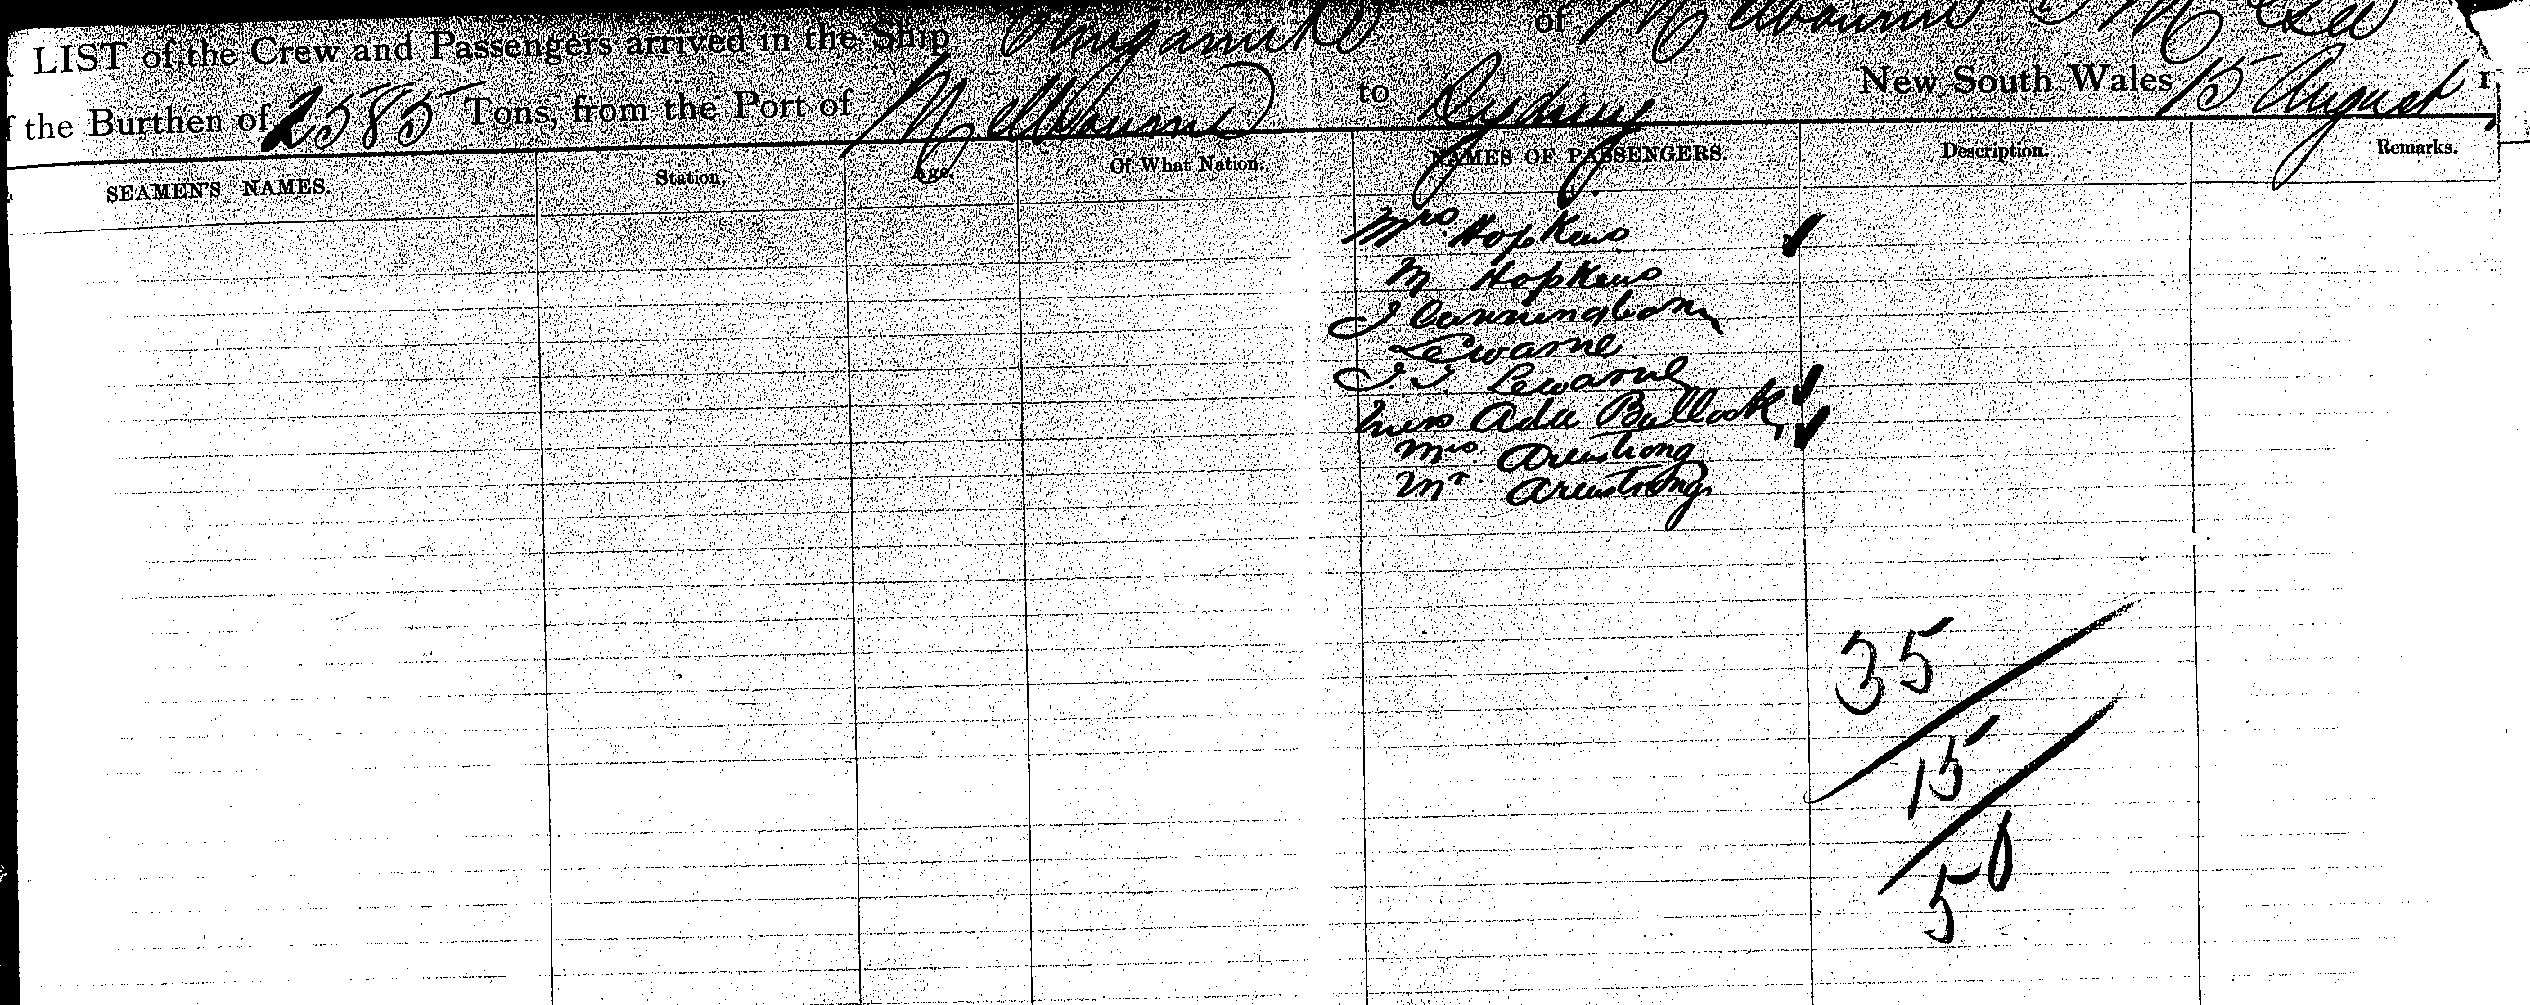 LIST of the Crew and Passengers arrived in the Ship of Melbourne
the Burthen of 2585 Tons, from the Port of Melbourne to Sydney New South Wales 15 August 1
SEAMEN'S NAMES. Station. Age. Of What Nation. NAMES OF PASSENGERS. Description. Remarks.
Mrs. Hopkins
M Hopkins
J Cunningham
Lewarne
J J Lewarne
Miss Ada Bullock
Mrs. Armstrong
Mr. Armstrong
35
15
50